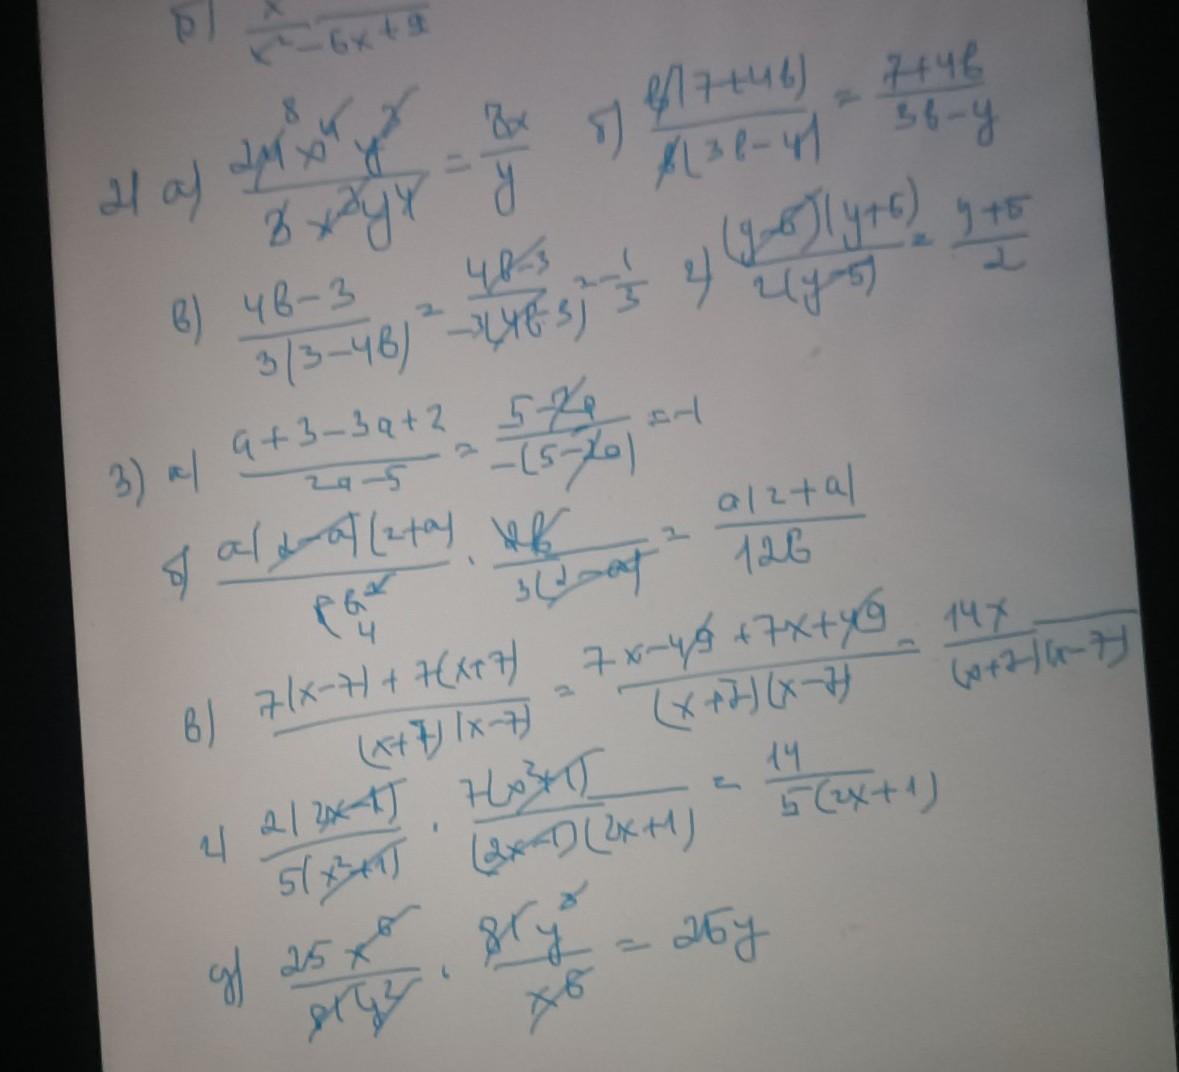 б) x / x² - 6x + 9
2) а) 24⁸x⁴y³ / 3x³y⁴ = 8x / y б) b(7+4b) / b(3b-y) = 7+4b / 3b-y
в) 4b-3 / 3(3-4b) = 4b-3 / -3(4b-3) = -1/3 г) (y-5)(y+5) / 2(y-5) = y+5 / 2
3) а) a+3-3a+2 / 2a-5 = 5-2a / -(5-2a) = -1
б) a(2-a)(2+a) / 8b² 4 · 2b / 3(2-a) = a(2+a) / 12b
в) 7(x-7)+7(x+7) / (x+7)(x-7) = 7x-49+7x+49 / (x+7)(x-7) = 14x / (x+7)(x-7)
г) 2(2x-1) / 5(x²+1) · 7(x²+1) / (2x-1)(2x+1) = 14 / 5(2x+1)
д) 25x⁶ / 81y² · 81y³ / x⁶ = 25y